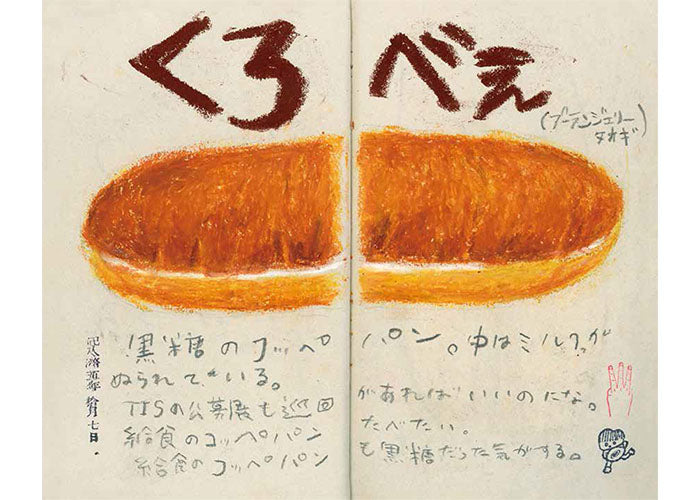 くろべえ
(ブーランジェリー
タオギ)
黒糖のコッペパン。中はミルクが
ぬられている。
TISの公募展も巡回があればいいのにな。
給食のコッペパンたべたい。
給食のコッペパンも黒糖だった気がする。
拾月七日